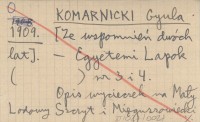 KOMARNICKI Gyula.
1909. [Ze wspomnień dwóch
lat]. — Egyetemi Lapok
( ) nr 3 i 4.
Opis wycieczek na Mały
Lodowy Szczyt i Mięguszowiecki